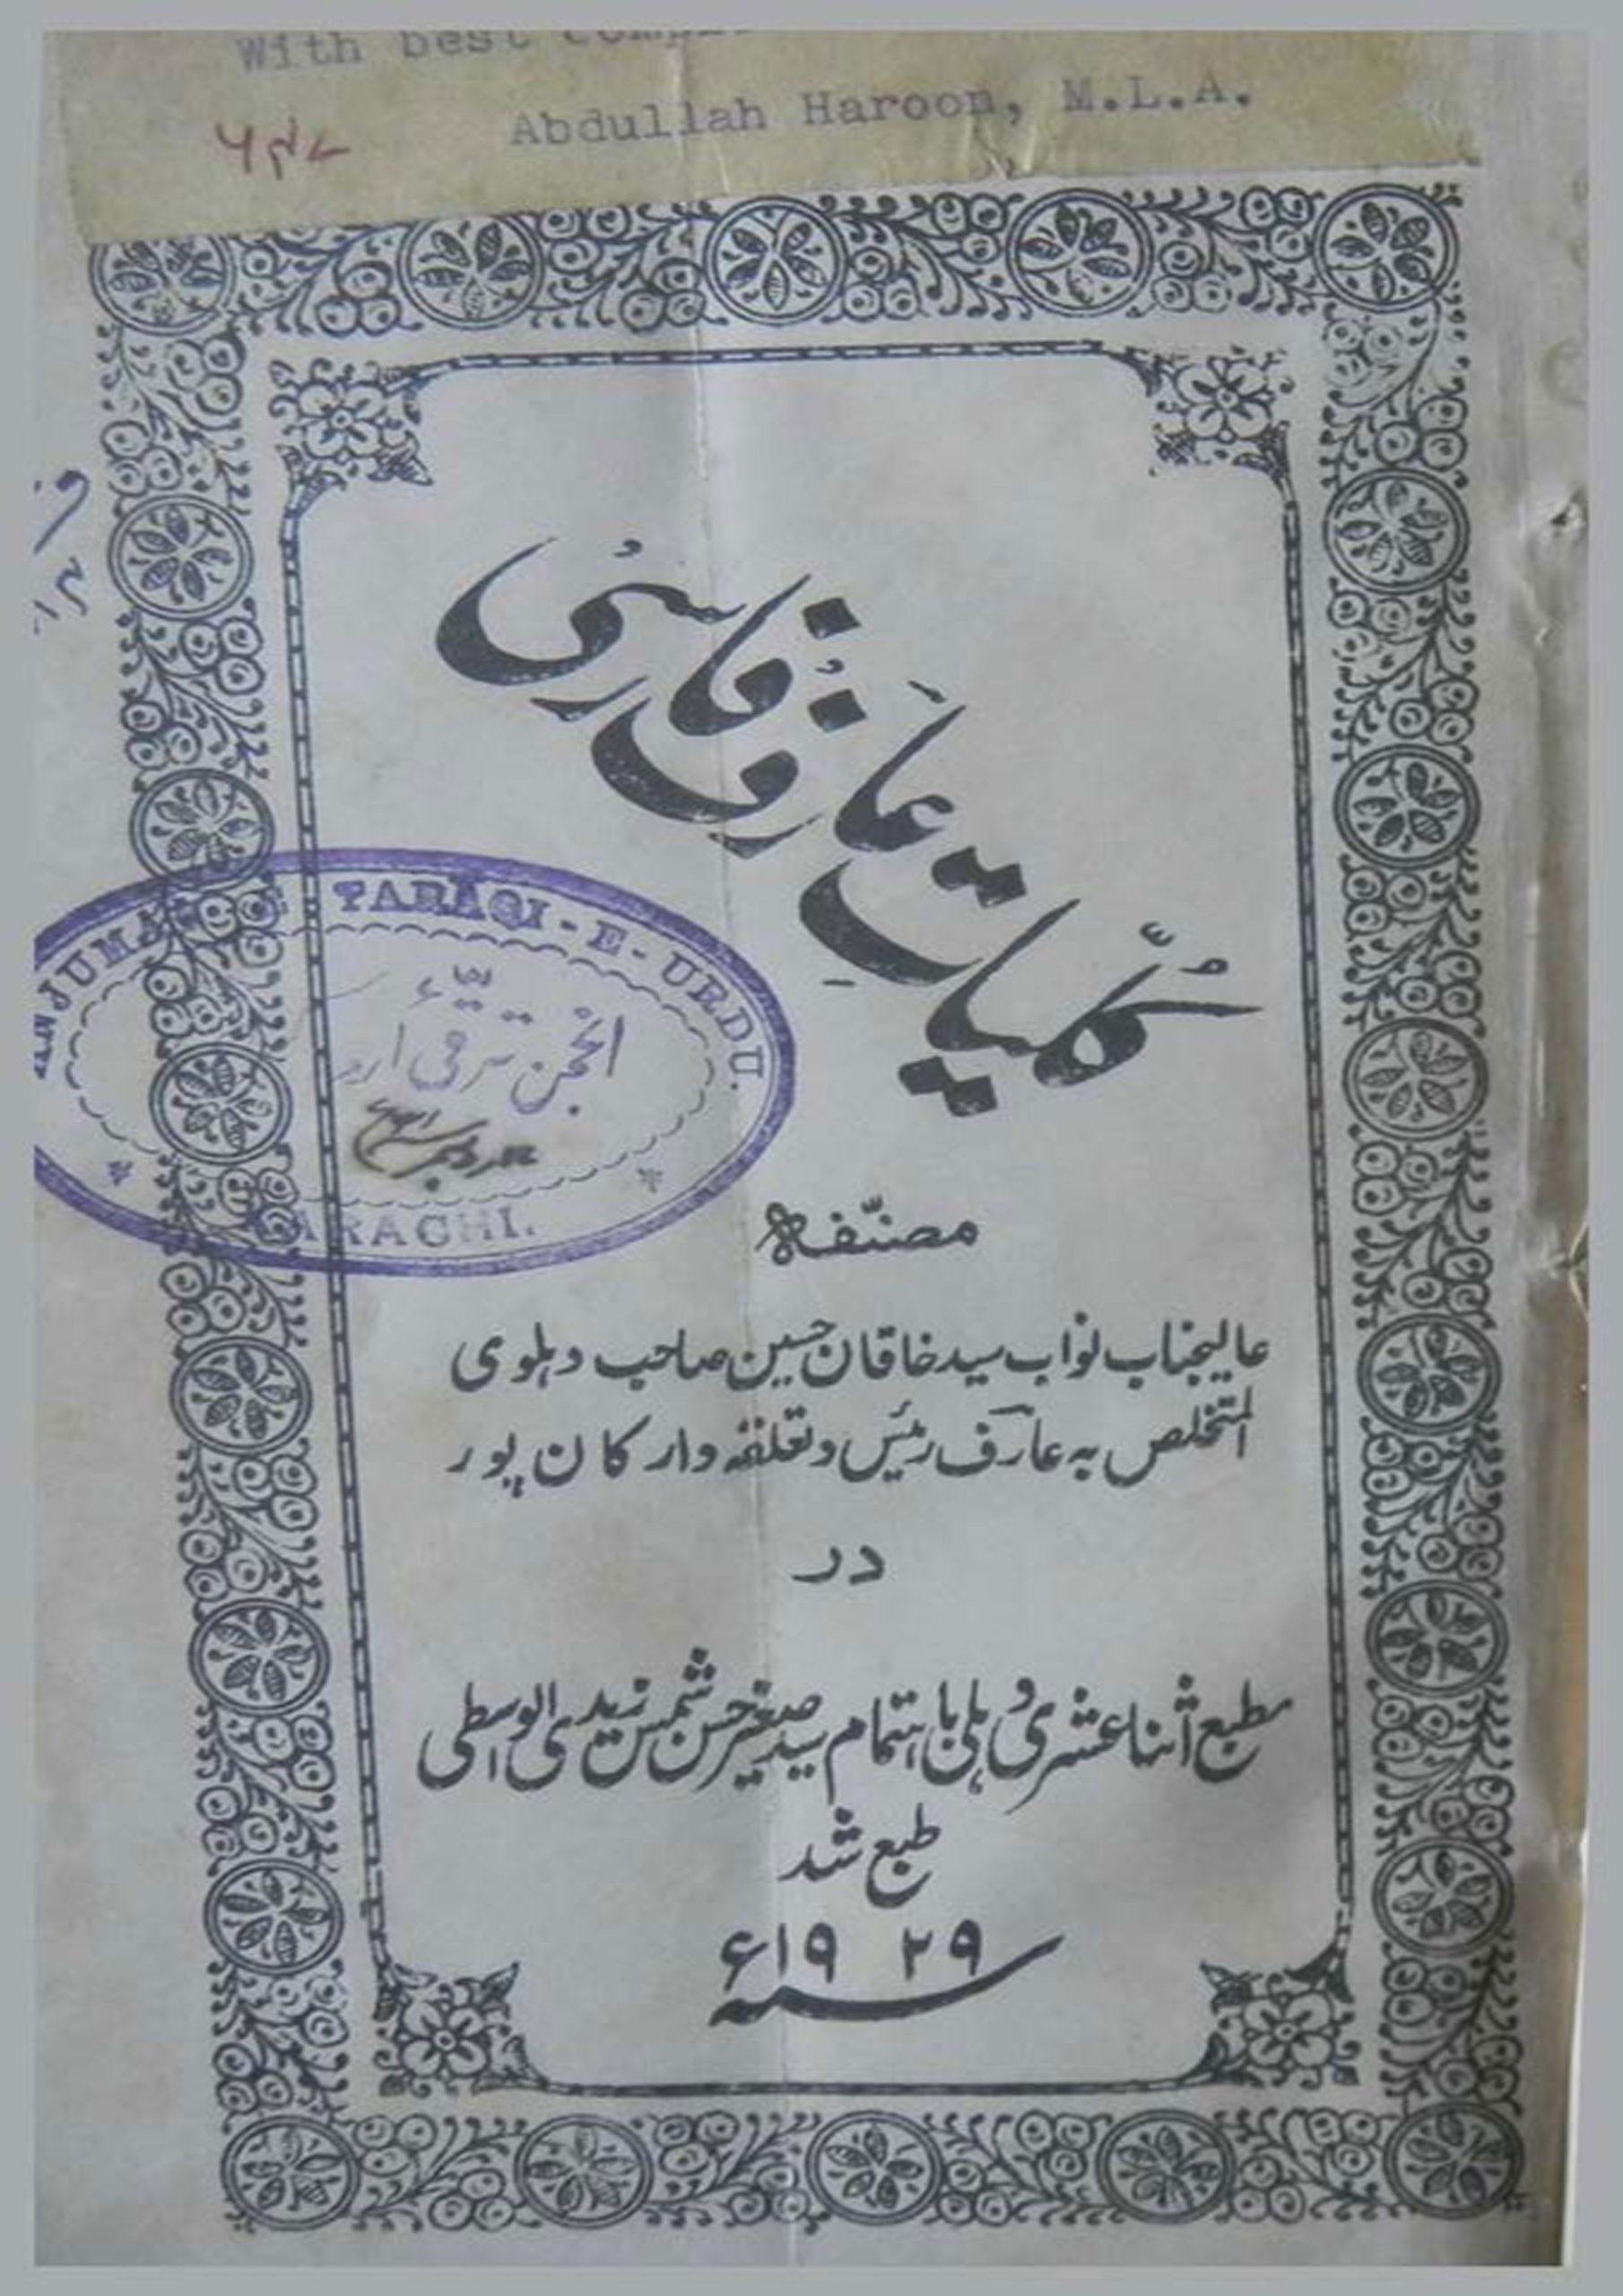 With best
Abdullah Haroon, M.L.A.
۵۹۸
کُلّیاتِ عارف فارسی
ANJUMAN TARAQI-E-URDU.
انجمن ترقّیٔ اردو
KARACHI.
مصنّفہ
عالیجناب نواب سید خاقان حسین صاحب دہلوی
المتخلص بہ عارف رئیس و تعلقہ دار کان پور
در
مطبع اثنا عشری دہلی باہتمام سید صغیر حسن شمس زیدی الواسطی
طبع شد
سنہ ۱۹۲۹ء